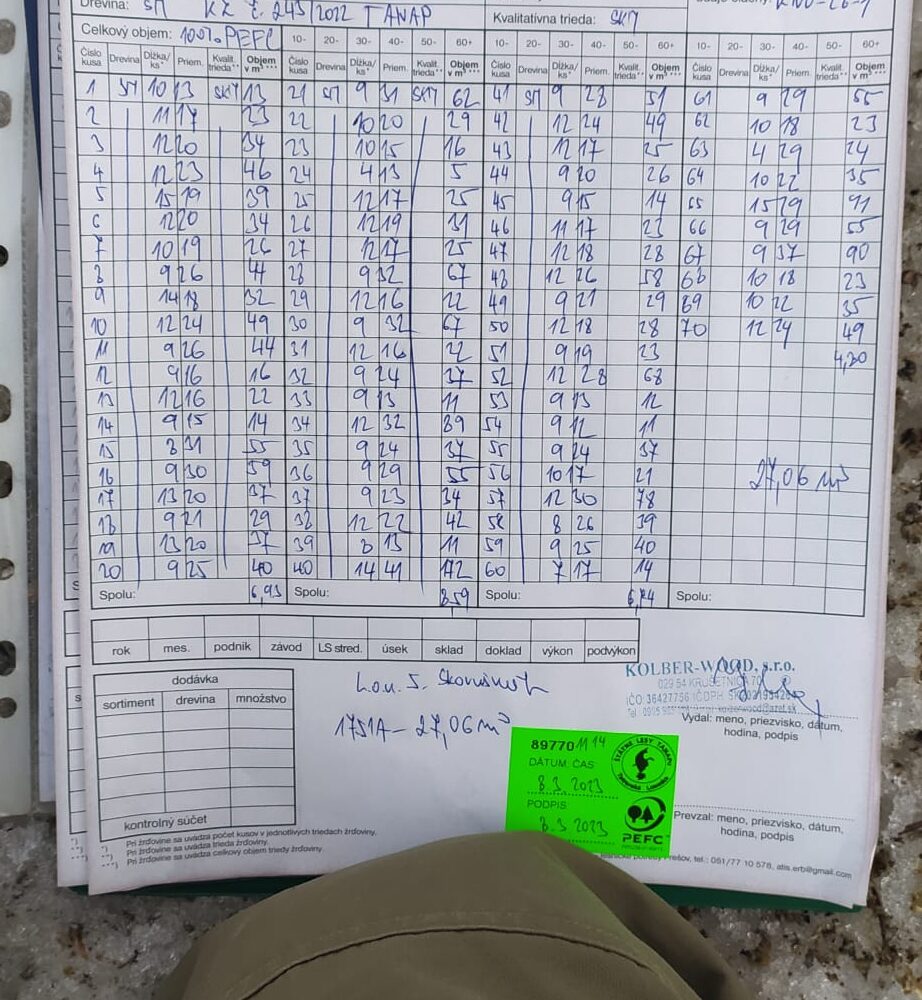 Drevina: SM KZ č. 245/2022 TANAP
Kvalitatívna trieda: SKM
Celkový objem: 100% PEFC
10- 20- 30- 40- 50- 60+ 10- 20- 30- 40- 50- 60+
Číslo kusa Drevina Dĺžka/ks* Priem. Kvalit. trieda** Objem v m³*** Číslo kusa Drevina Dĺžka/ks* Priem. Kvalit. trieda** Objem v m³***
1 SM 10 13 SKM 13 21 SM 9 31 SKM 62 41 SM 9 28 51 61 9 29 55
2 11 17 23 22 10 20 29 42 12 24 49 62 10 18 23
3 12 20 34 23 10 15 16 43 12 17 25 63 4 29 24
4 12 23 46 24 4 13 5 44 9 20 26 64 10 22 35
5 15 19 39 25 12 17 25 45 9 15 14 65 15 29 91
6 12 20 34 26 12 19 31 46 11 17 23 66 9 29 55
7 10 19 26 27 12 17 25 47 12 18 28 67 9 37 90
8 9 26 44 28 9 32 67 48 12 26 58 68 10 18 23
9 14 18 32 29 12 16 22 49 9 21 29 69 10 22 35
10 12 24 49 30 9 32 67 50 12 18 28 70 12 24 49
11 9 26 44 31 12 16 22 51 9 19 23 4,80
12 9 16 16 32 9 24 37 52 12 28 68
13 12 16 22 33 9 13 11 53 9 13 12
14 9 15 14 34 12 32 89 54 9 12 11
15 8 31 55 35 9 24 37 55 9 24 37
16 9 30 59 36 9 29 55 56 10 17 21 27,06 m³
17 13 20 37 37 9 23 34 57 12 30 78
18 9 21 29 38 12 22 42 58 8 26 39
19 13 20 37 39 8 13 11 59 9 25 40
20 9 25 40 40 14 41 172 60 7 17 14
Spolu: 6,93 Spolu: 8,59 Spolu: 6,74 Spolu:
rok mes. podnik závod LS stred. úsek sklad doklad výkon podvýkon
dodávka
sortiment drevina množstvo
kontrolný súčet
1751A - 27,06 m³
KOLBER-WOOD, s.r.o.
029 54 KRUŠETNICA 70
Vydal: meno, priezvisko, dátum,
hodina, podpis
89770 1114
DÁTUM, ČAS
8.3.2023
PODPIS
8.3 2023
ŠTÁTNE LESY TANAPU
Tatranská Lomnica
PEFC
Prevzal: meno, priezvisko, dátum,
hodina, podpis
*) Pri žrďovine sa uvádza počet kusov v jednotlivých triedach žrďoviny.
**) Pri žrďovine sa uvádza trieda žrďoviny.
***) Pri žrďovine sa uvádza celkový objem triedy žrďoviny
Prešov, tel.: 051/77 10 578, atis.erb@gmail.com